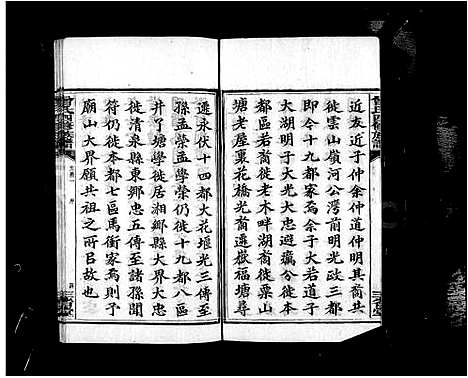 近友近子仲余仲道仲明其共
徙雲山嶺河公灣前明光政三都
即今十九都家焉余子大若道子
大湖明子大光大忠避瀛分徙本
都區若裔徙老木畔湖裔徙栗山
塘老屋棗花橋光裔遷嶽福塘尋
遷永伏十四都大花堰光三傳至
孫孟榮孟學榮仍徙十九都八區
井丁塘學徙居湘鄉縣大界大忠
徙清泉縣東鄉忠五傳至諸孫聞
符仍徙本都七區馬衝家焉則予
廟山大界頗共祖之所自故也